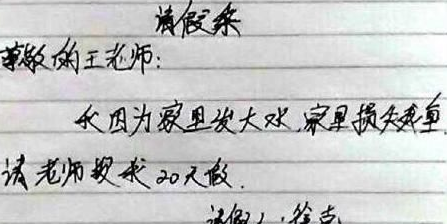 请假条
尊敬的王老师:
我因为家里发大水,家里损失惨重
请老师契我20天假.
请假人:徐吉